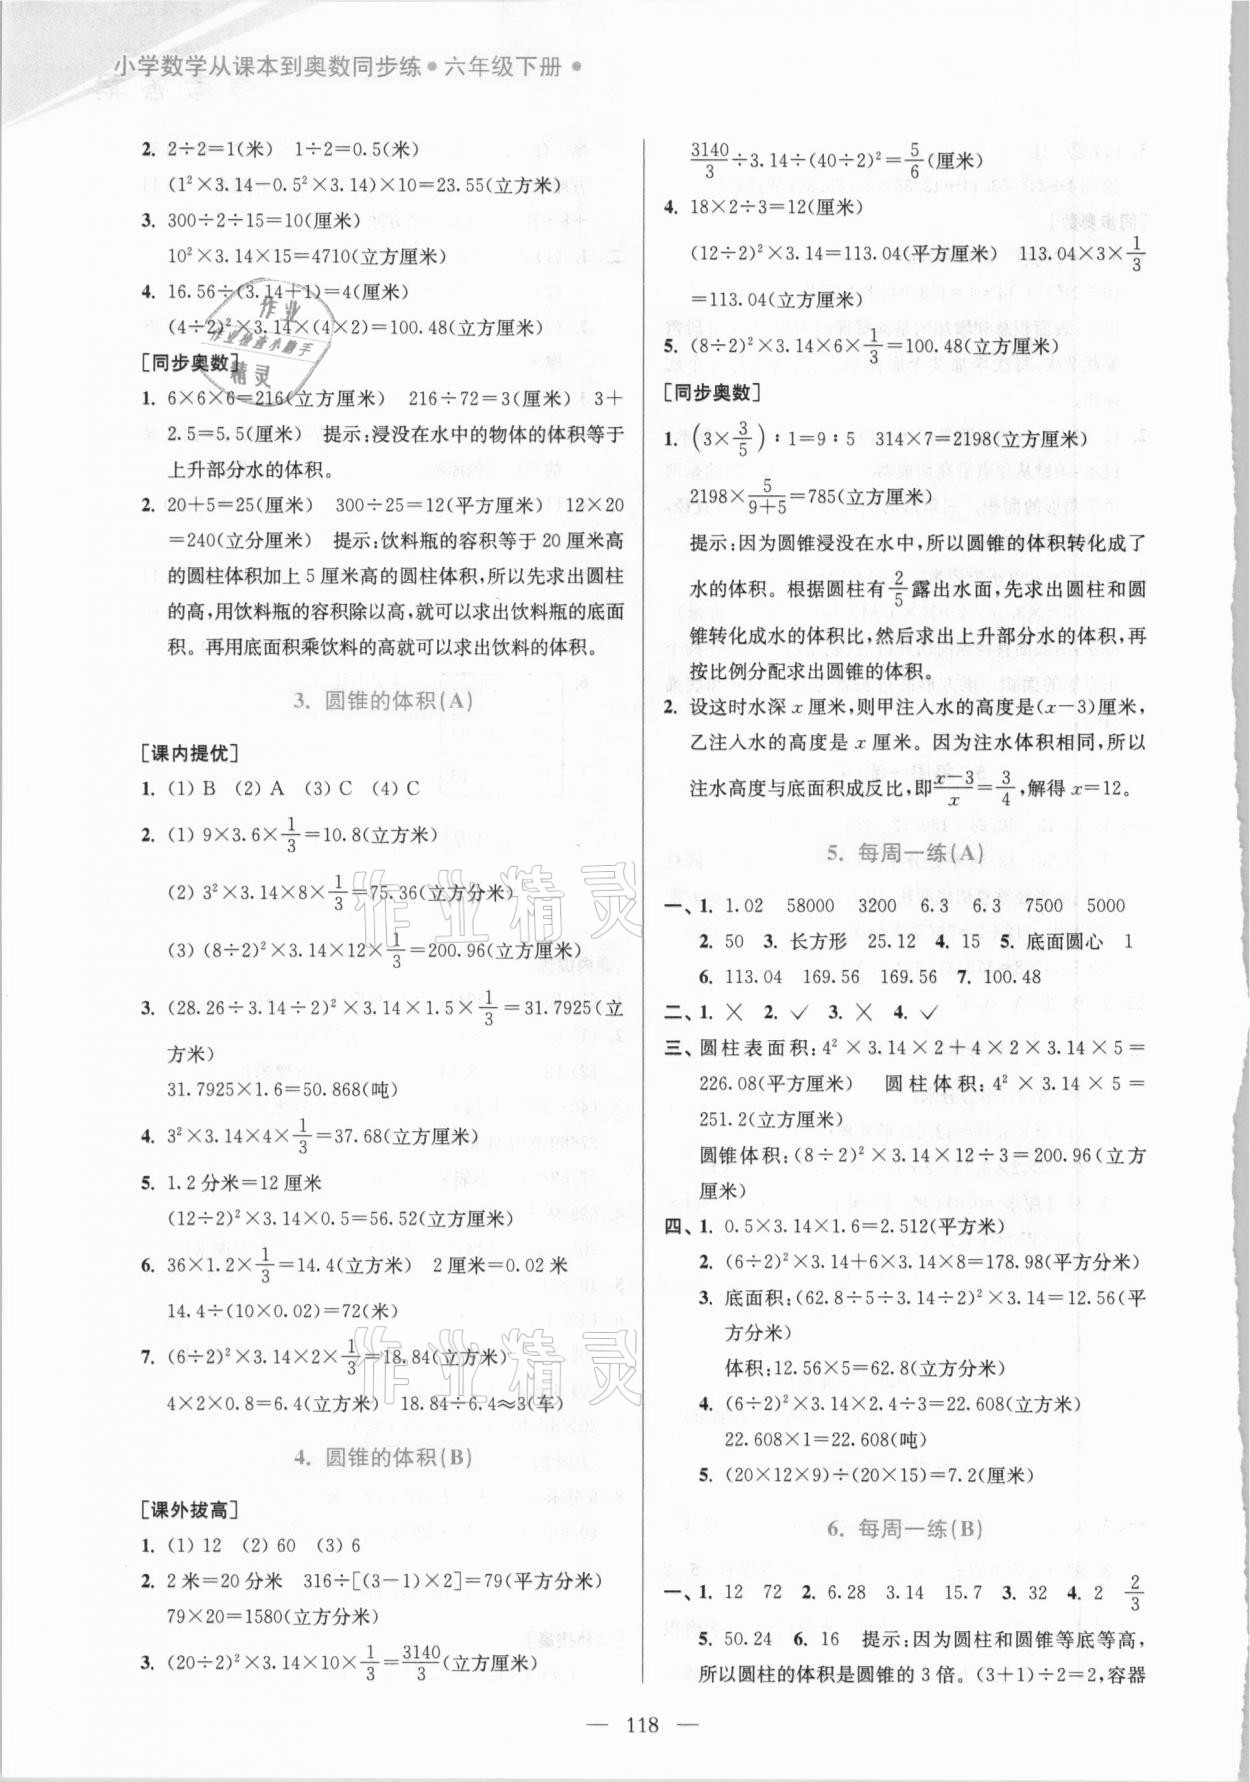 小学数学从课本到奥数同步练•六年级下册•
2. 2÷2=1(米) 1÷2=0.5(米)
(1²×3.14-0.5²×3.14)×10=23.55(立方米)
3. 300÷2÷15=10(厘米)
10²×3.14×15=4710(立方厘米)
4. 16.56÷(3.14+1)=4(厘米)
(4÷2)²×3.14×(4×2)=100.48(立方厘米)
[同步奥数]
1. 6×6×6=216(立方厘米) 216÷72=3(厘米) 3+
2.5=5.5(厘米) 提示:浸没在水中的物体的体积等于
上升部分水的体积。
2. 20+5=25(厘米) 300÷25=12(平方厘米) 12×20
=240(立分厘米) 提示:饮料瓶的容积等于 20 厘米高
的圆柱体积加上 5 厘米高的圆柱体积,所以先求出圆柱
的高,用饮料瓶的容积除以高,就可以求出饮料瓶的底面
积。再用底面积乘饮料的高就可以求出饮料的体积。
3. 圆锥的体积(A)
[课内提优]
1. (1) B (2) A (3) C (4) C
2. (1) 9×3.6×1/3=10.8(立方米)
(2) 3²×3.14×8×1/3=75.36(立方分米)
(3) (8÷2)²×3.14×12×1/3=200.96(立方厘米)
3. (28.26÷3.14÷2)²×3.14×1.5×1/3=31.7925(立
方米)
31.7925×1.6=50.868(吨)
4. 3²×3.14×4×1/3=37.68(立方厘米)
5. 1.2分米=12 厘米
(12÷2)²×3.14×0.5=56.52(立方厘米)
6. 36×1.2×1/3=14.4(立方米) 2厘米=0.02 米
14.4÷(10×0.02)=72(米)
7. (6÷2)²×3.14×2×1/3=18.84(立方米)
4×2×0.8=6.4(立方米) 18.84÷6.4≈3(车)
4. 圆锥的体积(B)
[课外拔高]
1. (1) 12 (2) 60 (3) 6
2. 2 米=20 分米 316÷[(3-1)×2]=79(平方分米)
79×20=1580(立方分米)
3. (20÷2)²×3.14×10×1/3=3140/3(立方厘米)
3140/3÷3.14÷(40÷2)²=5/6(厘米)
4. 18×2÷3=12(厘米)
(12÷2)²×3.14=113.04(平方厘米) 113.04×3×1/3
=113.04(立方厘米)
5. (8÷2)²×3.14×6×1/3=100.48(立方厘米)
[同步奥数]
1. (3×3/5)∶1=9∶5 314×7=2198(立方厘米)
2198×5/(9+5)=785(立方厘米)
提示:因为圆锥浸没在水中,所以圆锥的体积转化成了
水的体积。根据圆柱有2/5露出水面,先求出圆柱和圆
锥转化成水的体积比,然后求出上升部分水的体积,再
按比例分配求出圆锥的体积。
2. 设这时水深 x 厘米,则甲注入水的高度是(x-3)厘米,
乙注入水的高度是 x 厘米。因为注水体积相同,所以
注水高度与底面积成反比,即(x-3)/x=3/4,解得 x=12。
5. 每周一练(A)
一、1. 1.02 58000 3200 6.3 6.3 7500 5000
2. 50 3. 长方形 25.12 4. 15 5. 底面圆心 1
6. 113.04 169.56 169.56 7. 100.48
二、1. × 2. ✓ 3. × 4. ✓
三、圆柱表面积:4²×3.14×2+4×2×3.14×5=
226.08(平方厘米) 圆柱体积:4²×3.14×5=
251.2(立方厘米)
圆锥体积:(8÷2)²×3.14×12÷3=200.96(立方
厘米)
四、1. 0.5×3.14×1.6=2.512(平方米)
2. (6÷2)²×3.14+6×3.14×8=178.98(平方分米)
3. 底面积:(62.8÷5÷3.14÷2)²×3.14=12.56(平
方分米)
体积:12.56×5=62.8(立方分米)
4. (6÷2)²×3.14×2.4÷3=22.608(立方米)
22.608×1=22.608(吨)
5. (20×12×9)÷(20×15)=7.2(厘米)
6. 每周一练(B)
一、1. 12 72 2. 6.28 3.14 15.7 3. 32 4. 2 2/3
5. 50.24 6. 16 提示:因为圆柱和圆锥等底等高,
所以圆柱的体积是圆锥的 3 倍。(3+1)÷2=2,容器
— 118 —
作业
作业检查小助手
精灵
作业精灵
作业精灵